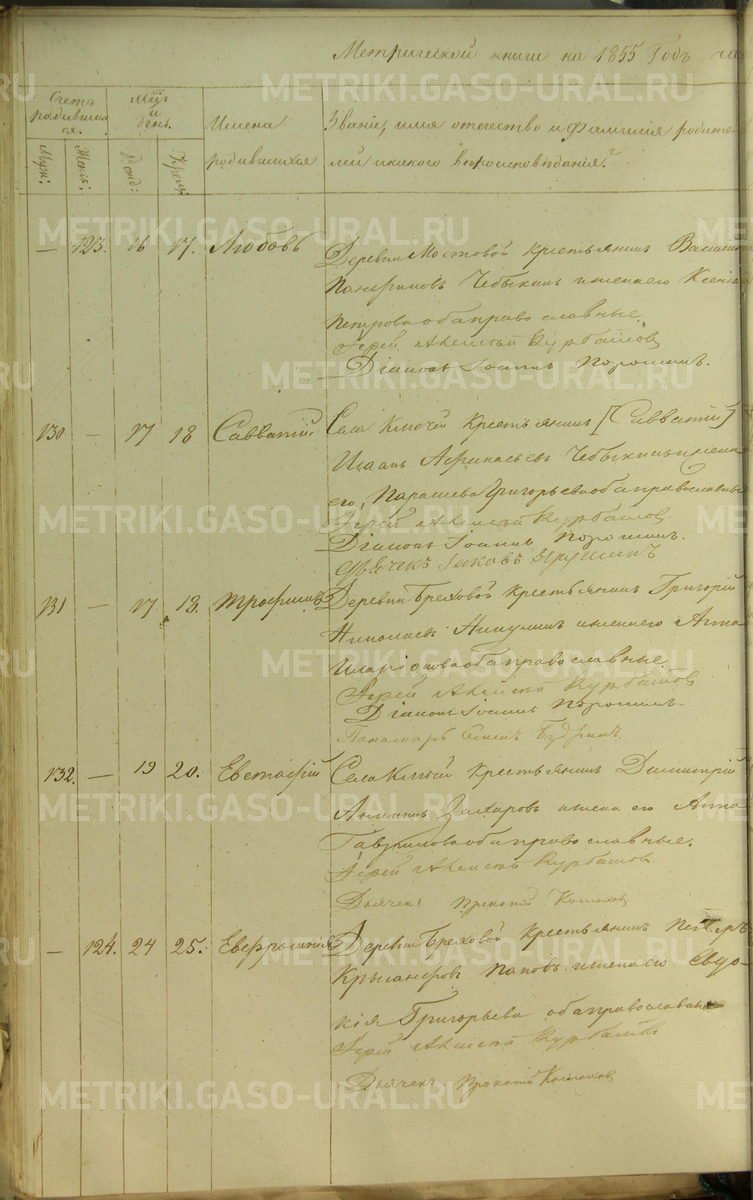 Метрической книги на 1855 Годъ
METRIKI.GASO-URAL.RU
Счетъ родившихся.
Муж: Женс:
М-цъ и день.
Рожд: Крещ:
Имена родившихся
Званіе, имя отечество и фамилія родите-
лей и какого вѣроисповѣданія?
— 123. 16 17. Любовь
Деревни Мостовой Крестьянинъ
Чебыкинъ и жена его Ксенія
Петрова оба православные.
Іерей Алексѣй Курбатовъ
Діаконъ Іоаннъ Порошинъ.
130 — 17 18 Савватій
Села Ключей Крестьянинъ [Савватій]
Исаакъ Афанасьевъ Чебыкинъ и жена
его, Григорьева оба православные
Іерей Алексѣй Курбатовъ
Діаконъ Іоаннъ Порошинъ.
Дьячекъ Іаковъ
131 — 17 18. Трофимъ
Деревни Бреховой Крестьянинъ Григорій
Николаевъ Никулинъ и жена его Анна
Иларіонова оба православные.
Іерей Алексѣй Курбатовъ
Діаконъ Іоаннъ Порошинъ.
Пономарь
132. — 19 20. Евстафій
Села Ключей Крестьянинъ Димитрій
Захаровъ и жена его Анна
Гаврилова оба православные.
Іерей Алексѣй Курбатовъ
Дьячекъ Прокопій
— 124. 24 25. Евфросинія
Деревни Бреховой Крестьянинъ Петръ
Поповъ и жена его Евдо-
кія Григорьева оба православные
Іерей Алексѣй Курбатовъ
Дьячекъ Прокопій